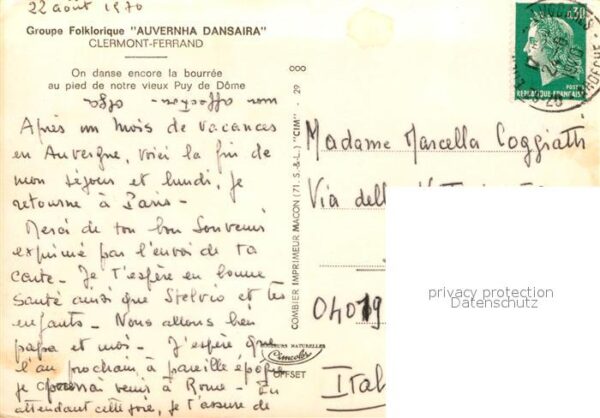 22 août 1970
Groupe Folklorique "AUVERNHA DANSAIRA"
CLERMONT-FERRAND
On danse encore la bourrée
au pied de notre vieux Puy de Dôme
mon affection
Après un mois de vacances
en Auvergne, voici la fin de
mon séjour et lundi, je
retourne à Paris -
Merci de ton bon souvenir
exprimé par l'envoi de ta
carte - Je t'espère en bonne
santé ainsi que Stelvio et tes
enfants - Nous allons bien
papa et moi - J'espère que
l'an prochain, à pareille époque
je pourrai venir à Rome - En
attendant cette joie, je t'assure de
COMBIER IMPRIMEUR MACON (71. S.-&-L.) "CIM" - 29
COULEURS NATURELLES
Cimcolor
OFFSET
0,30
POSTES
REPUBLIQUE FRANÇAISE
ARDECHE
Madame Marcella Coggiatti
Via della
04019
Ital
privacy protection
Datenschutz